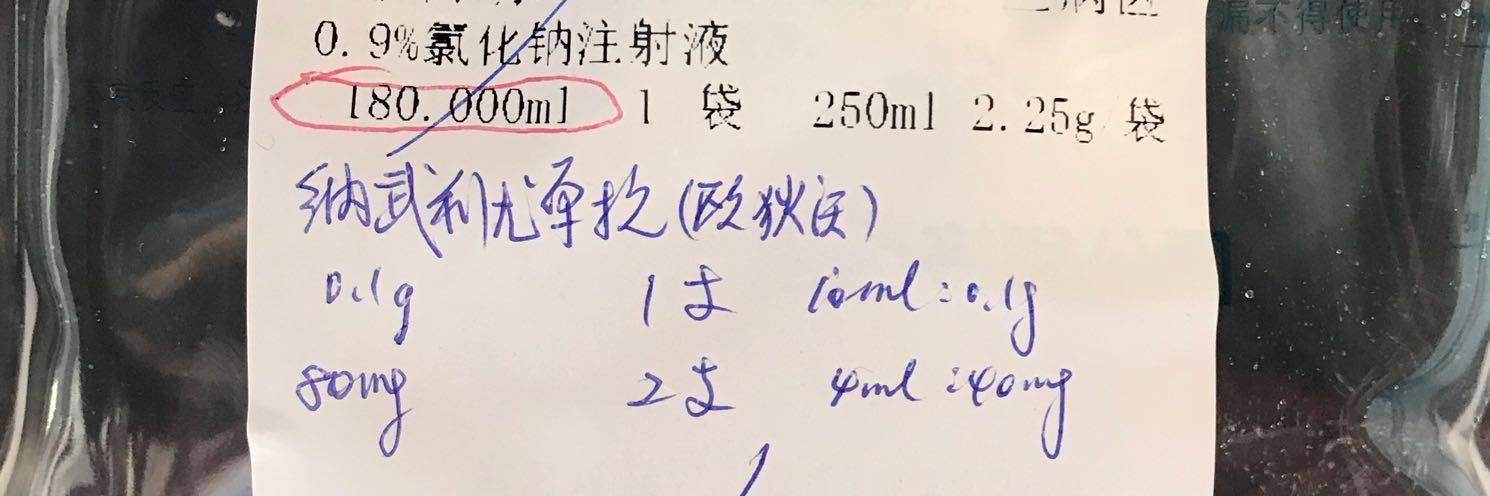 漏不得使用
0.9%氯化钠注射液
180.000ml 1 袋 250ml 2.25g/袋
纳武利尤单抗(欧狄沃)
0.1g 1支 10ml:0.1g
80mg 2支 4ml:40mg